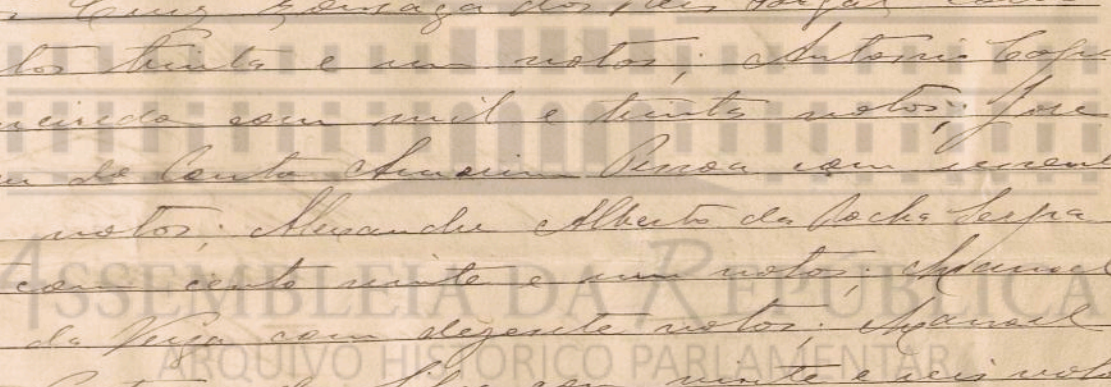 Cruz Gonzaga dos Reis
tos trinta e um votos; Antonio
com mil e trinta votos; José
do Couto Amorim Pessoa com
votos; Alexandre Alberto da Rocha Serpa
com cento vinte e um votos; Manoel
da Veiga com dezesete votos; Manoel
da Silva com vinte e seis
ASSEMBLEIA DA REPÚBLICA
ARQUIVO HISTÓRICO PARLAMENTAR